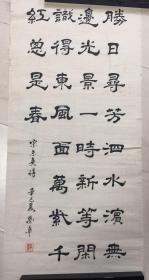 勝日尋芳泗水濱無
邊光景一時新等閒
識得東風面萬紫千
紅總是春
宋朱熹詩 辛巳夏